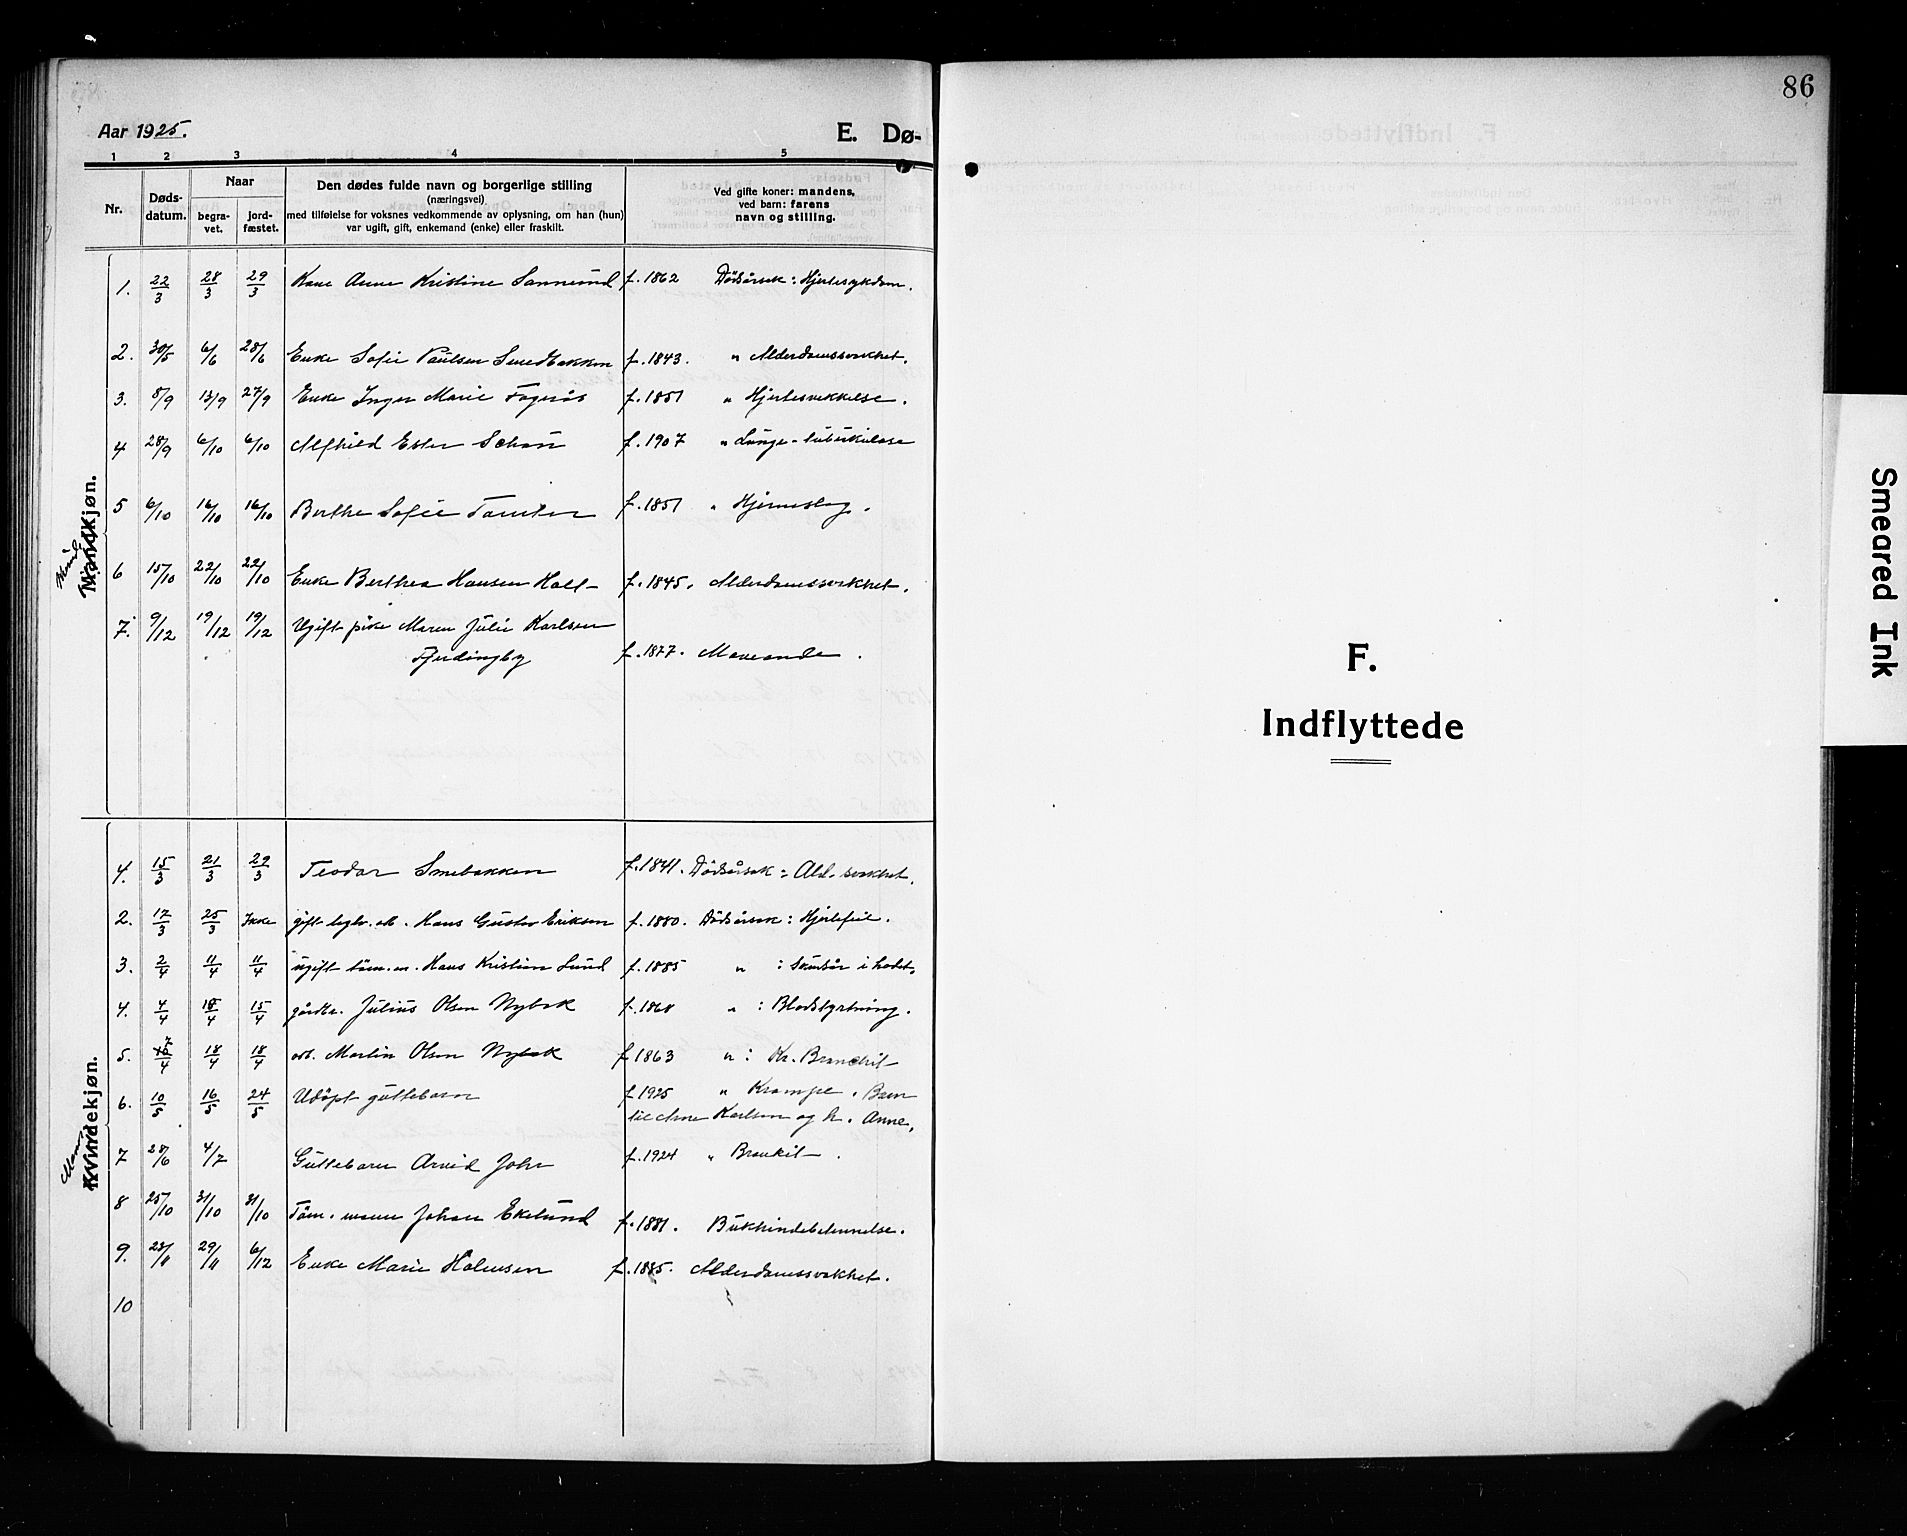 86
Aar 1925.
E. Dø-
1 2 3 4 5
Nr.
Døds-
datum.
Naar
begra-
vet.
jord-
fæstet.
Den dødes fulde navn og borgerlige stilling
(næringsvei)
med tilføielse for voksnes vedkommende av oplysning, om han (hun)
var ugift, gift, enkemand (enke) eller fraskilt.
Ved gifte koner: mandens,
ved barn: farens
navn og stilling.
Kvindekjøn.
1. 22/3 28/3 29/3 Kone Anne Kristine Sannerud f. 1862 Dödsårsak: Hjertesykdom.
2. 30/5 6/6 28/6 Enke Sofie Paulsen Smedbakken f. 1843. " Alderdomssvakhet.
3. 8/9 13/9 27/9 Enke Inger Marie Fagerås f. 1851 " Hjertesvekkelse.
4 28/9 6/10 6/10 Alfhild Ester Schau f. 1907 " Lunge-tuberkulose
5 6/10 16/10 16/10 Berthe Sofie Tomter f. 1851 " Hjerneslag.
6 15/10 22/10 22/10 Enke Berthea Hansen Holt f. 1845. Alderdomssvakhet.
7. 9/12 19/12 19/12 Ugift pike Maren Julie Karlsen
Fjerdingby f. 1877. Maveonde.
Mandkjøn.
1. 15/3 21/3 29/3 Teodor Smebakken f. 1841. Dödsårsak: Ald. svakhet.
2. 17/3 25/3 Ikke gift Hans Gustav Eriksen f. 1880. Dödsårsak: Hjertefeil.
3. 2/4 11/4 11/4 ugift töm. m. Hans Kristian Lund f. 1885 " : Skudsår i hodet.
4. 4/4 15/4 15/4 gårdbr. Julius Olsen Nybak f. 1860 " : Blodstyrtning.
5. 7/4 18/4 18/4 arb. Martin Olsen Nybak f 1863 " : Kr. Bronchit
6. 10/5 16/5 24/5 Udöpt guttebarn f. 1925 " Krampe. Barn
til Arne Karlsen og h. Anne.
7 28/6 4/7 Guttebarn Arvid John f. 1924 " Bronkit.
8 25/10 31/10 31/10 Töm. mann Johan Ekelund f. 1881. Bukhindebetennelse.
9. 23/11 29/11 6/12 Enke Marie Holmsen f. 1885. Alderdomssvakhet.
10
F.
Indflyttede
Smeared Ink